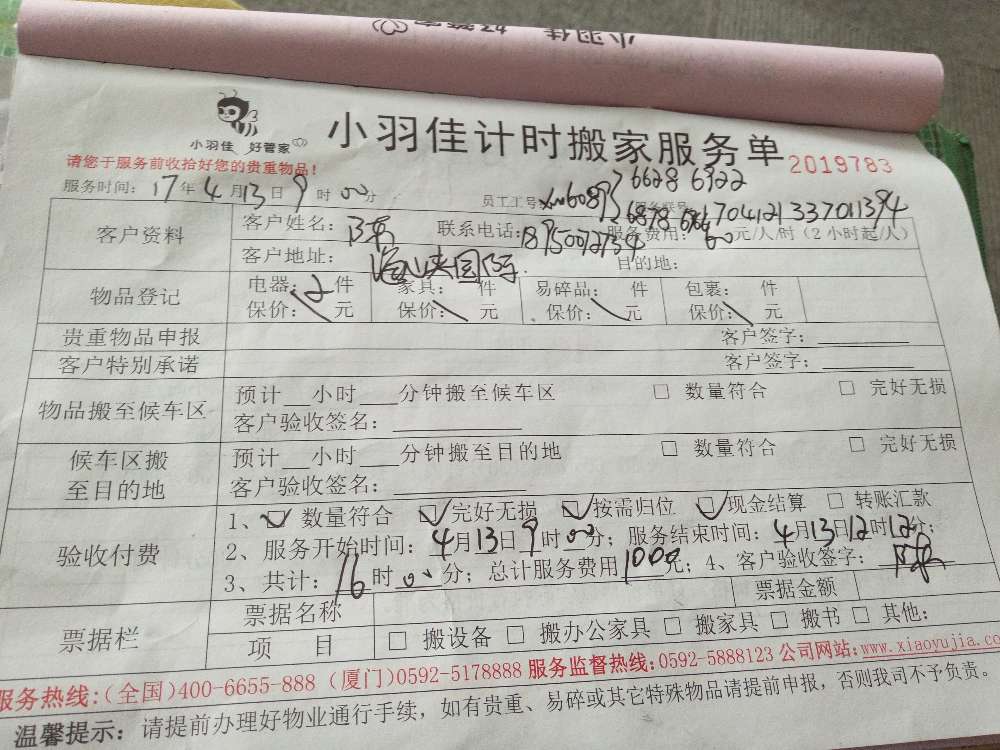 小羽佳 好管家
小羽佳 好管家
小羽佳计时搬家服务单 2019783
请您于服务前收拾好您的贵重物品!
服务时间: 17年4月13日9时00分 员工工号:
6628 6922
客户资料
客户姓名: 联系电话: 服务费用: 60元/人/时 (2小时起/人)
客户地址: 目的地:
物品登记
电器: 2件 家具: 件 易碎品: 件 包裹: 件
保价: 元 保价: 元 保价: 元 保价: 元
贵重物品申报 客户签字:
客户特别承诺 客户签字:
物品搬至候车区
预计__小时___分钟搬至候车区 □ 数量符合 □ 完好无损
客户验收签名:
候车区搬至目的地
预计__小时___分钟搬至目的地 □ 数量符合 □ 完好无损
客户验收签名:
验收付费
1、☑ 数量符合 ☑ 完好无损 ☑ 按需归位 ☑ 现金结算 □ 转账汇款
2、服务开始时间: 4月13日9时00分; 服务结束时间: 4月13日12时12分;
3、共计: 16时00分; 总计服务费用1000元; 4、客户验收签字:
票据栏
票据名称 票据金额
项 目 □ 搬设备 □ 搬办公家具 □ 搬家具 □ 搬书 □ 其他:
服务热线:(全国)400-6655-888 (厦门)0592-5178888 服务监督热线:0592-5888123 公司网站:www.xiaoyujia.com
温馨提示: 请提前办理好物业通行手续，如有贵重、易碎或其它特殊物品请提前申报，否则我司不予负责。